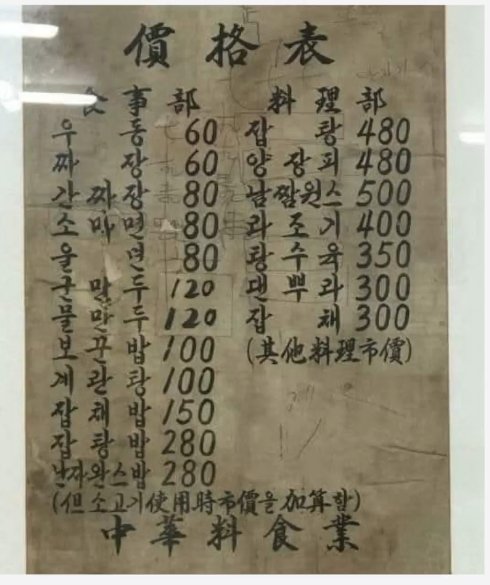 價格表
食事部
우동 60
짜장 60
간짜장 80
소마면 80
울면 80
군만두 120
물만두 120
보꾼밥 100
계란탕 100
잡채밥 150
잡탕밥 280
난자완스밥 280
料理部
잡탕 480
양장피 480
500
라조기 400
탕수육 350
덴뿌라 300
잡채 300
(其他料理市價)
(但소고기使用時市價을加算함)
中華料食業